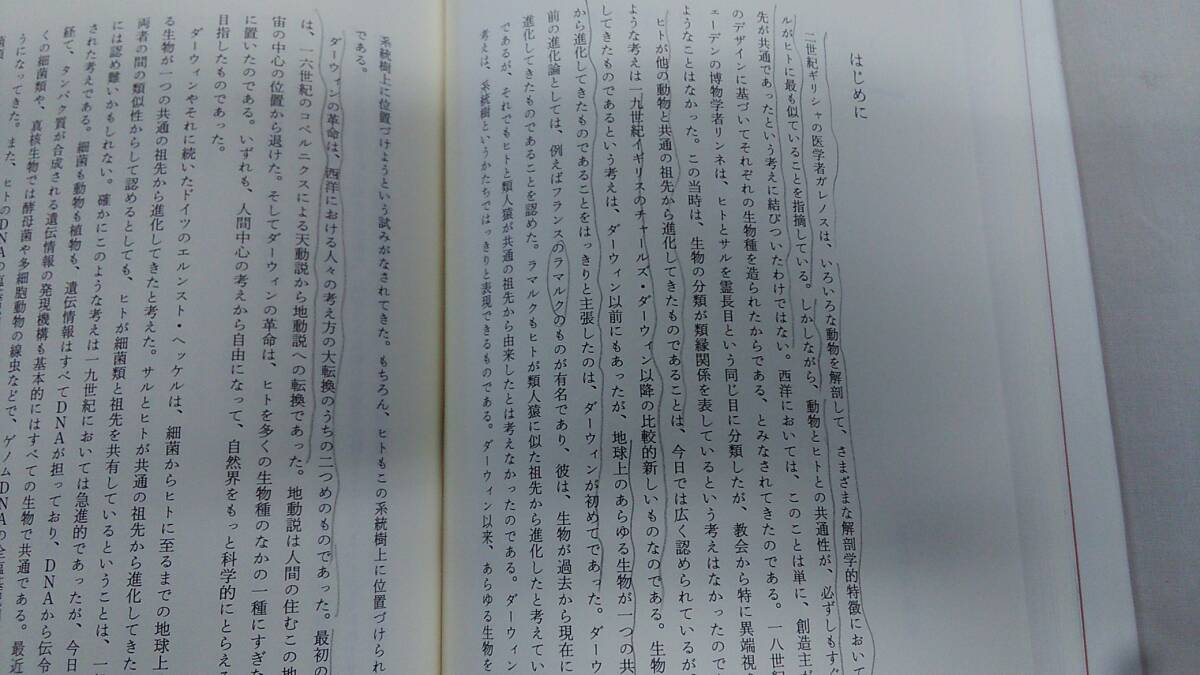 はじめに
二世紀ギリシャの医学者ガレノスは、いろいろな動物を解剖して、さまざまな解剖学的特徴において
ルがヒトに最も似ていることを指摘している。しかしながら、動物とヒトとの共通性が、必ずしもすぐ
先が共通であったという考えに結びついたわけではない。西洋においては、このことは単に、創造主が
のデザインに基づいてそれぞれの生物種を造られたからである、とみなされてきたのである。一八世紀
ェーデンの博物学者リンネは、ヒトとサルを霊長目という同じ目に分類したが、教会から特に異端視
ようなことはなかった。この当時は、生物の分類が類縁関係を表しているという考えはなかったので
ヒトが他の動物と共通の祖先から進化してきたものであることは、今日では広く認められているが
ような考えは一九世紀イギリスのチャールズ・ダーウィン以降の比較的新しいものなのである。生物
してきたものであるという考えは、ダーウィン以前にもあったが、地球上のあらゆる生物が一つの共
から進化してきたものであることをはっきりと主張したのは、ダーウィンが初めてであった。ダーウ
前の進化論としては、例えばフランスのラマルクのものが有名であり、彼は、生物が過去から現在に
進化してきたものであることを認めた。ラマルクもヒトが類人猿に似た祖先から進化したと考えてい
であるが、それでもヒトと類人猿が共通の祖先から由来したとは考えなかったのである。ダーウィン
考えは、系統樹というかたちではっきりと表現できるものである。ダーウィン以来、あらゆる生物を
系統樹上に位置づけようという試みがなされてきた。もちろん、ヒトもこの系統樹上に位置づけられ
である。
ダーウィンの革命は、西洋における人々の考え方の大転換のうちの二つめのものであった。最初の
は、一六世紀のコペルニクスによる天動説から地動説への転換であった。地動説は人間の住むこの地
宙の中心の位置から退けた。そしてダーウィンの革命は、ヒトを多くの生物種のなかの一種にすぎな
に置いたのである。いずれも、人間中心の考えから自由になって、自然界をもっと科学的にとらえる
目指したものであった。
ダーウィンやそれに続いたドイツのエルンスト・ヘッケルは、細菌からヒトに至るまでの地球上
る生物が一つの共通の祖先から進化してきたと考えた。サルとヒトが共通の祖先から進化してきた
両者の間の類似性からして認めるとしても、ヒトが細菌類と祖先を共有しているということは、一
には認め難いかもしれない。確かにこのような考えは一九世紀においては急進的であったが、今日
された考えである。細菌も動物も植物も、遺伝情報はすべてDNAが担っており、DNAから伝令
経て、タンパク質が合成される遺伝情報の発現機構も基本的にはすべての生物で共通である。最近
くの細菌類や、真核生物では酵母菌や多細胞動物の線虫などで、ゲノムDNAの全塩基
うになってきた。また、ヒトのDNAの塩基